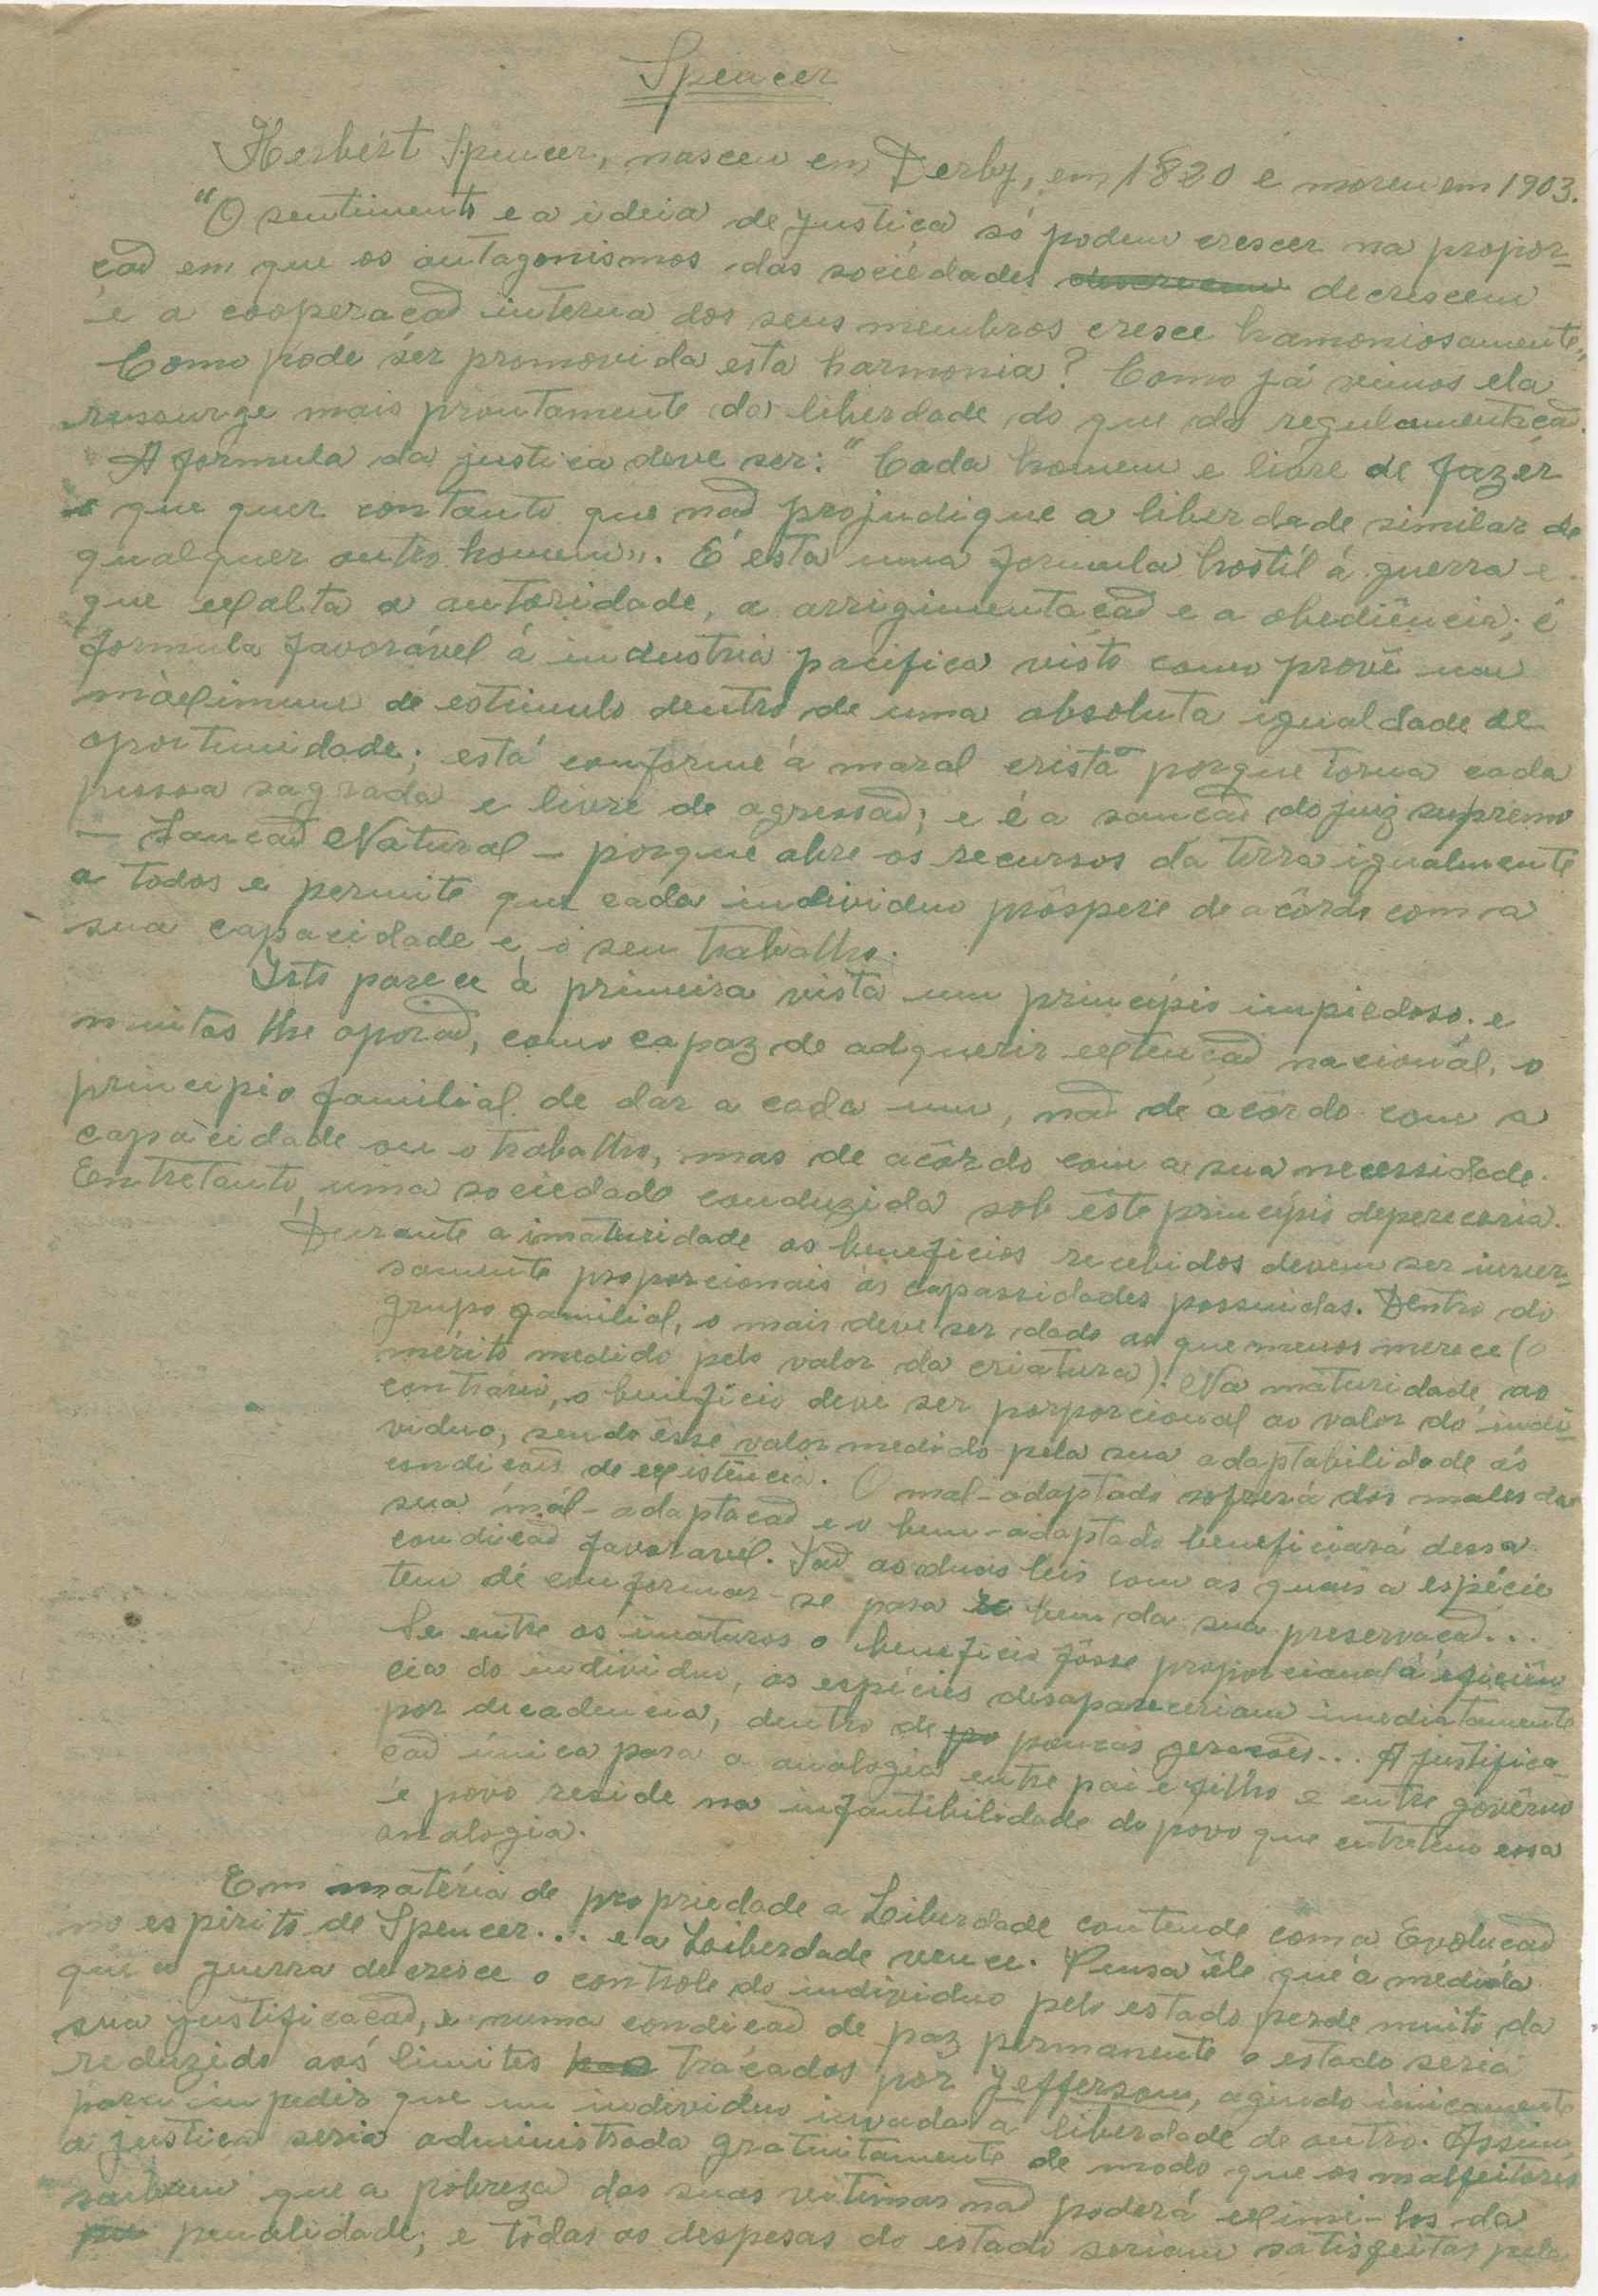 Spencer
Herbért Spencer, nasceu em Derby, em 1820 e moreu em 1903.
"O sentimento e a ideia de justiça só podem crescer na propor-
çaõ em que os antagonismos das sociédades decrescem
e a cooperaçaõ interna dos seus membros cresce hamoniosamente„
Como pode sér promovida esta harmonia? Como já vimos ela
ressurge mais prontamente da liberdade do que da regulamentaçaõ.
A formula da justiça deve ser: "Cada homem e livre de fazér
o que quer contanto que naõ projudique a liberdade similar de
qualquer outro homem„. É esta uma formula hostíl á guerra e
que exalta a autoridade, a arrigimentaçaõ e a obediência; é
formula favorável á industria pacifica visto como provê um
máximum de estimulo dentro de uma absoluta igualdade de
oportunidade; está conforme á maral cristã porque torna cada
pessoa sagrada e livre de agressaõ; e é a sançaõ do juiz supremo
— Sançaõ Natural — porque abre os recursos da terra igualmente
a todos e permite que cada individuo próspere de acôrdo com a
sua capacidade e o seu trabalho.
Isto parece á primeira vista um principio impiedoso. e
muitos lhe oporaõ, como capaz de adquerir extençaõ nacionál, o
principio familial de dar a cada um, naõ de acôrdo com a
capacidade ou o trabalho, mas de acôrdo com a sua necessidade.
Entretanto, uma sociedade conduzida sob êste principio depereceria.
Durante a imaturidade os beneficios recebidos devem ser inver-
samente proporcionais ás capassidades possuidas. Dentro do
grupo familial, o mais deve ser dado ao que menos merece (o
mérito medido pelo valor da criatura). Na maturidade, ao
contrário, o beneficio deve ser porporcional ao valor do indi-
viduo, sendo êsse valor medido pela sua adaptabilidade ás
condiçoês de existência. O mal-adaptado sofrerá dos males da
sua mál-adaptaçaõ e o bem-adaptado beneficiará dessa
condiçaõ favoravel. Saõ as duas leis com as quais a espécie
tem de conformar-se para bem da sua preservaçaõ...
Se entre os imaturos o beneficio fôsse proporcional á eficiên
cia do individuo, as espécies desapareceriam imediatamente
por decadencia, dentro de poucas geraçoês... A justifica-
çaõ única para a analogia entre pai e filho e entre govêrno
e povo reside na infantibilidade do povo que entretem essa
analogia.
Em matéria de propriedade a Liberdade contende com a Evoluçaõ
no espirito de Spencer... e a Liberdade vence. Pensa êle que á medida
que a guerra decresce o controle do individuo pelo estado perde muito da
sua justificaçaõ, e numa condiçaõ de paz permanente o estado seria
reduzido aos limites traçados por Jeffersom, agindo únicamente
para impedir que um individuo invada a liberdade de outro. Assim
a justiça seria administrada gratuitamente de modo que os malfeitores
saibam que a pobreza das suas vitimas naõ poderá eximi-los da
penalidade; e tôdas as despesas do estado seriam satisfeitas pela